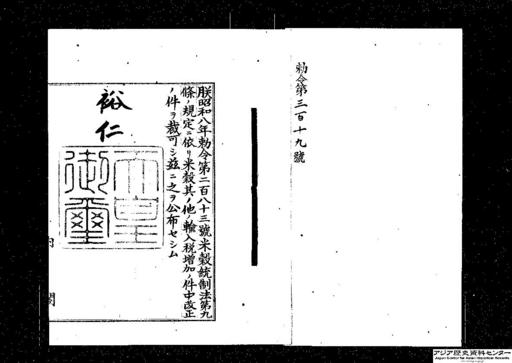 勅令第三百十九號
朕昭和八年勅令第二百八十三號米穀統制法第九
條ノ規定ニ依リ米穀其ノ他ノ輸入税増加ノ件中改正
ノ件ヲ裁可シ茲ニ之ヲ公布セシム
裕仁
天皇
御璽
内 閣
アジア歴史資料センター
Japan Center for Asian Historical Records